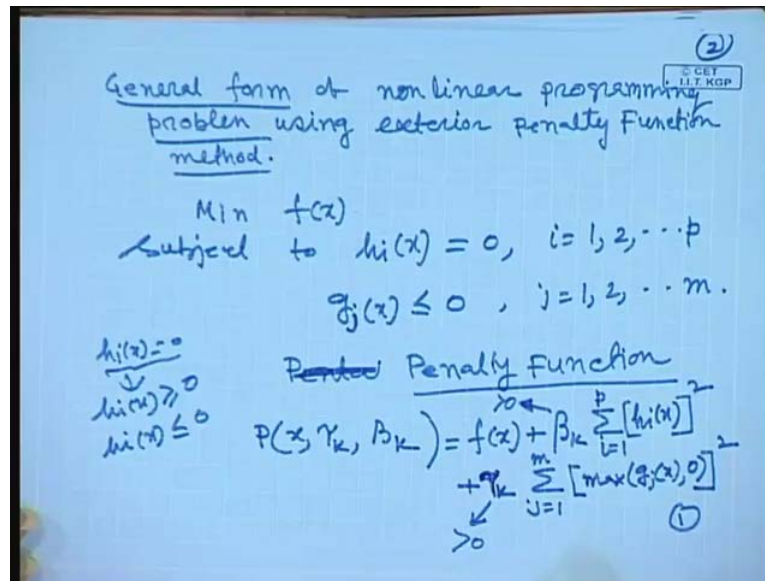 ②
© CET
I.I.T. KGP
General form of nonlinear programming
problem using exterior penalty Function
method.
Min f(x)
Subject to hi(x) = 0, i = 1, 2, ... p
gj(x) ≤ 0, j = 1, 2, .. m.
Penalty Function
hi(x) = 0
hi(x) ≥ 0
hi(x) ≤ 0
P(x, γk, βk) = f(x) + βk Σ_{i=1}^{p} [hi(x)]^2
>0
+ γk Σ_{j=1}^{m} [max(gj(x), 0)]^2
>0
①